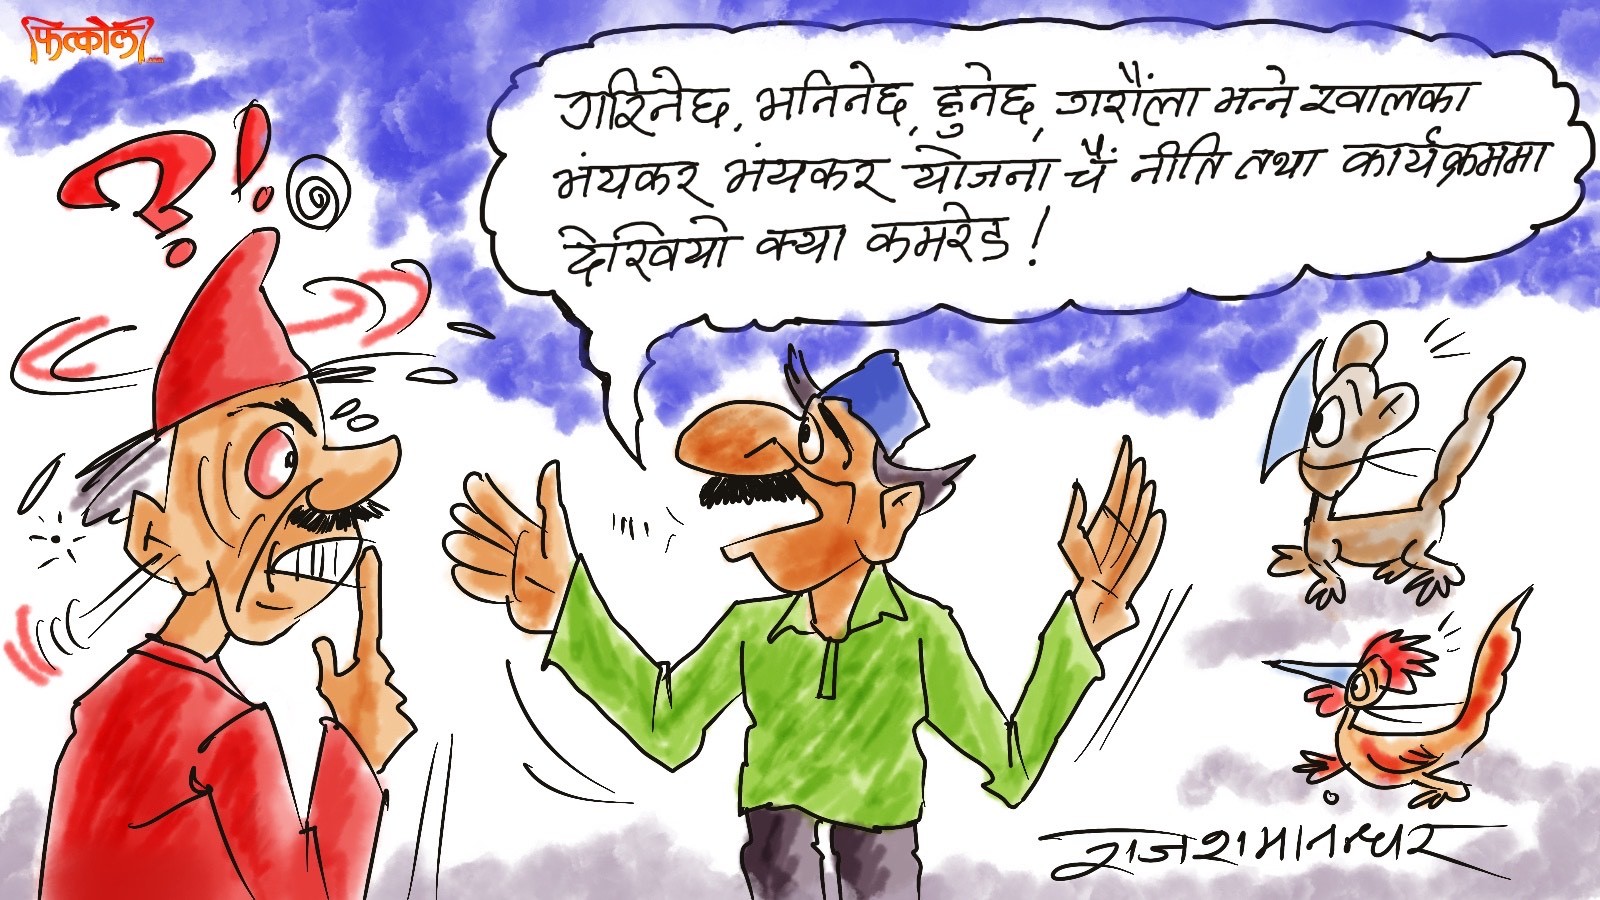 फत्कौली
.com
गरिनेछ, भनिनेछ, हुनेछ, गरौंला भन्ने खालका
भंयकर भंयकर योजना चैं नीति तथा कार्यक्रममा
देखियो क्या कमरेड!
राजेश मानन्धर